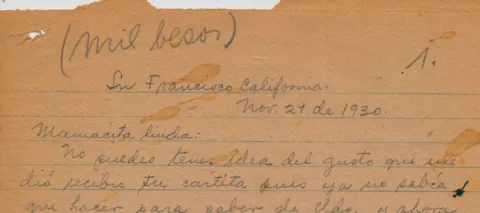 (mil besos)
1.
Sn Francisco California.
Nov. 21 de 1930.
Mamacita linda:
No puedes tener idea del gusto que me
dió recibir tu cartita pues ya no sabía
que hacer para saber de Uds. y ahora